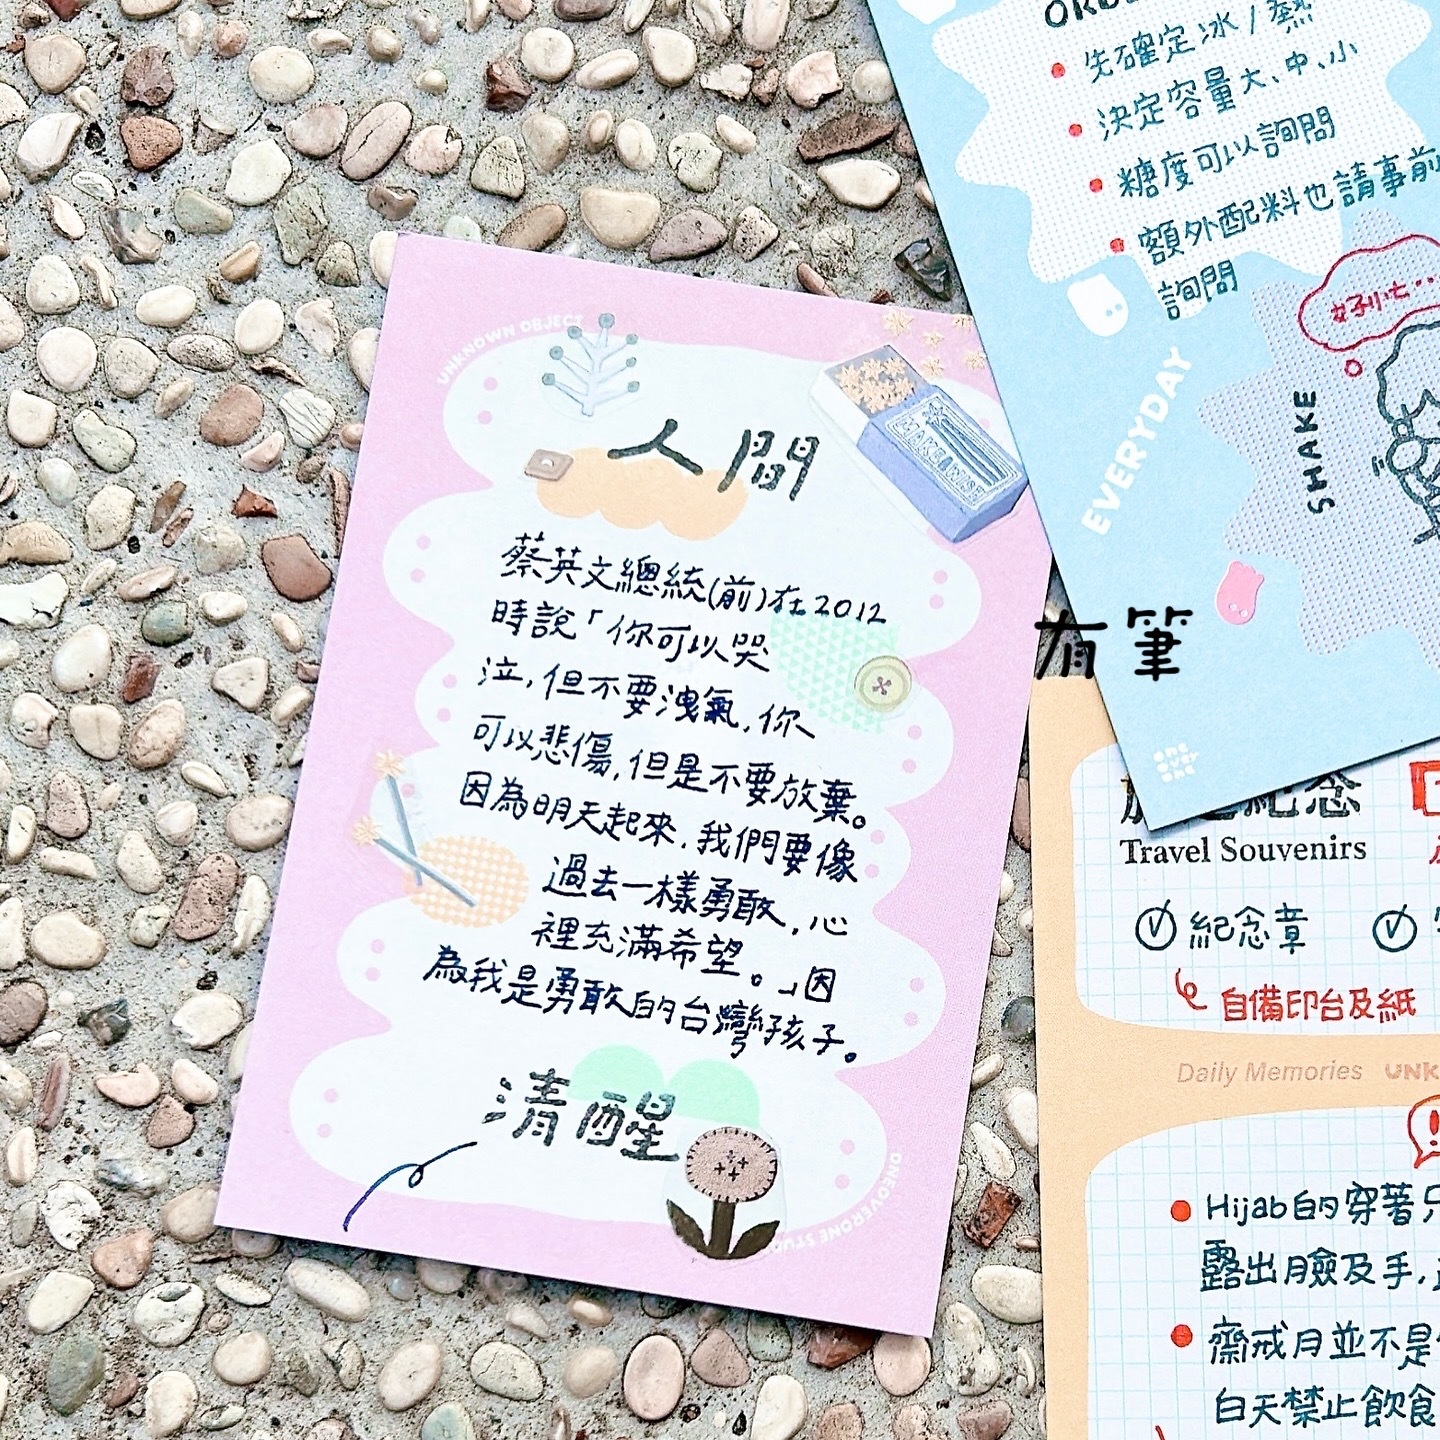 UNKNOWN OBJECT
人間
蔡英文總統(前)在2012
時說「你可以哭
泣,但不要洩氣,你
可以悲傷,但是不要放棄。
因為明天起來,我們要像
過去一樣勇敢,心
裡充滿希望。」因
為我是勇敢的台灣好孩子。
清醒
先確定冰/熱
決定容量大、中、小
糖度可以詢問
額外配料也請事前
詢問
好小七...
EVERYDAY
SHAKE
有筆
one
over
one
紀念
Travel Souvenirs
紀念章
自備印台及紙
Daily Memories
Hijab的穿著只
露出臉及手,
齋戒月並不是
白天禁止飲食